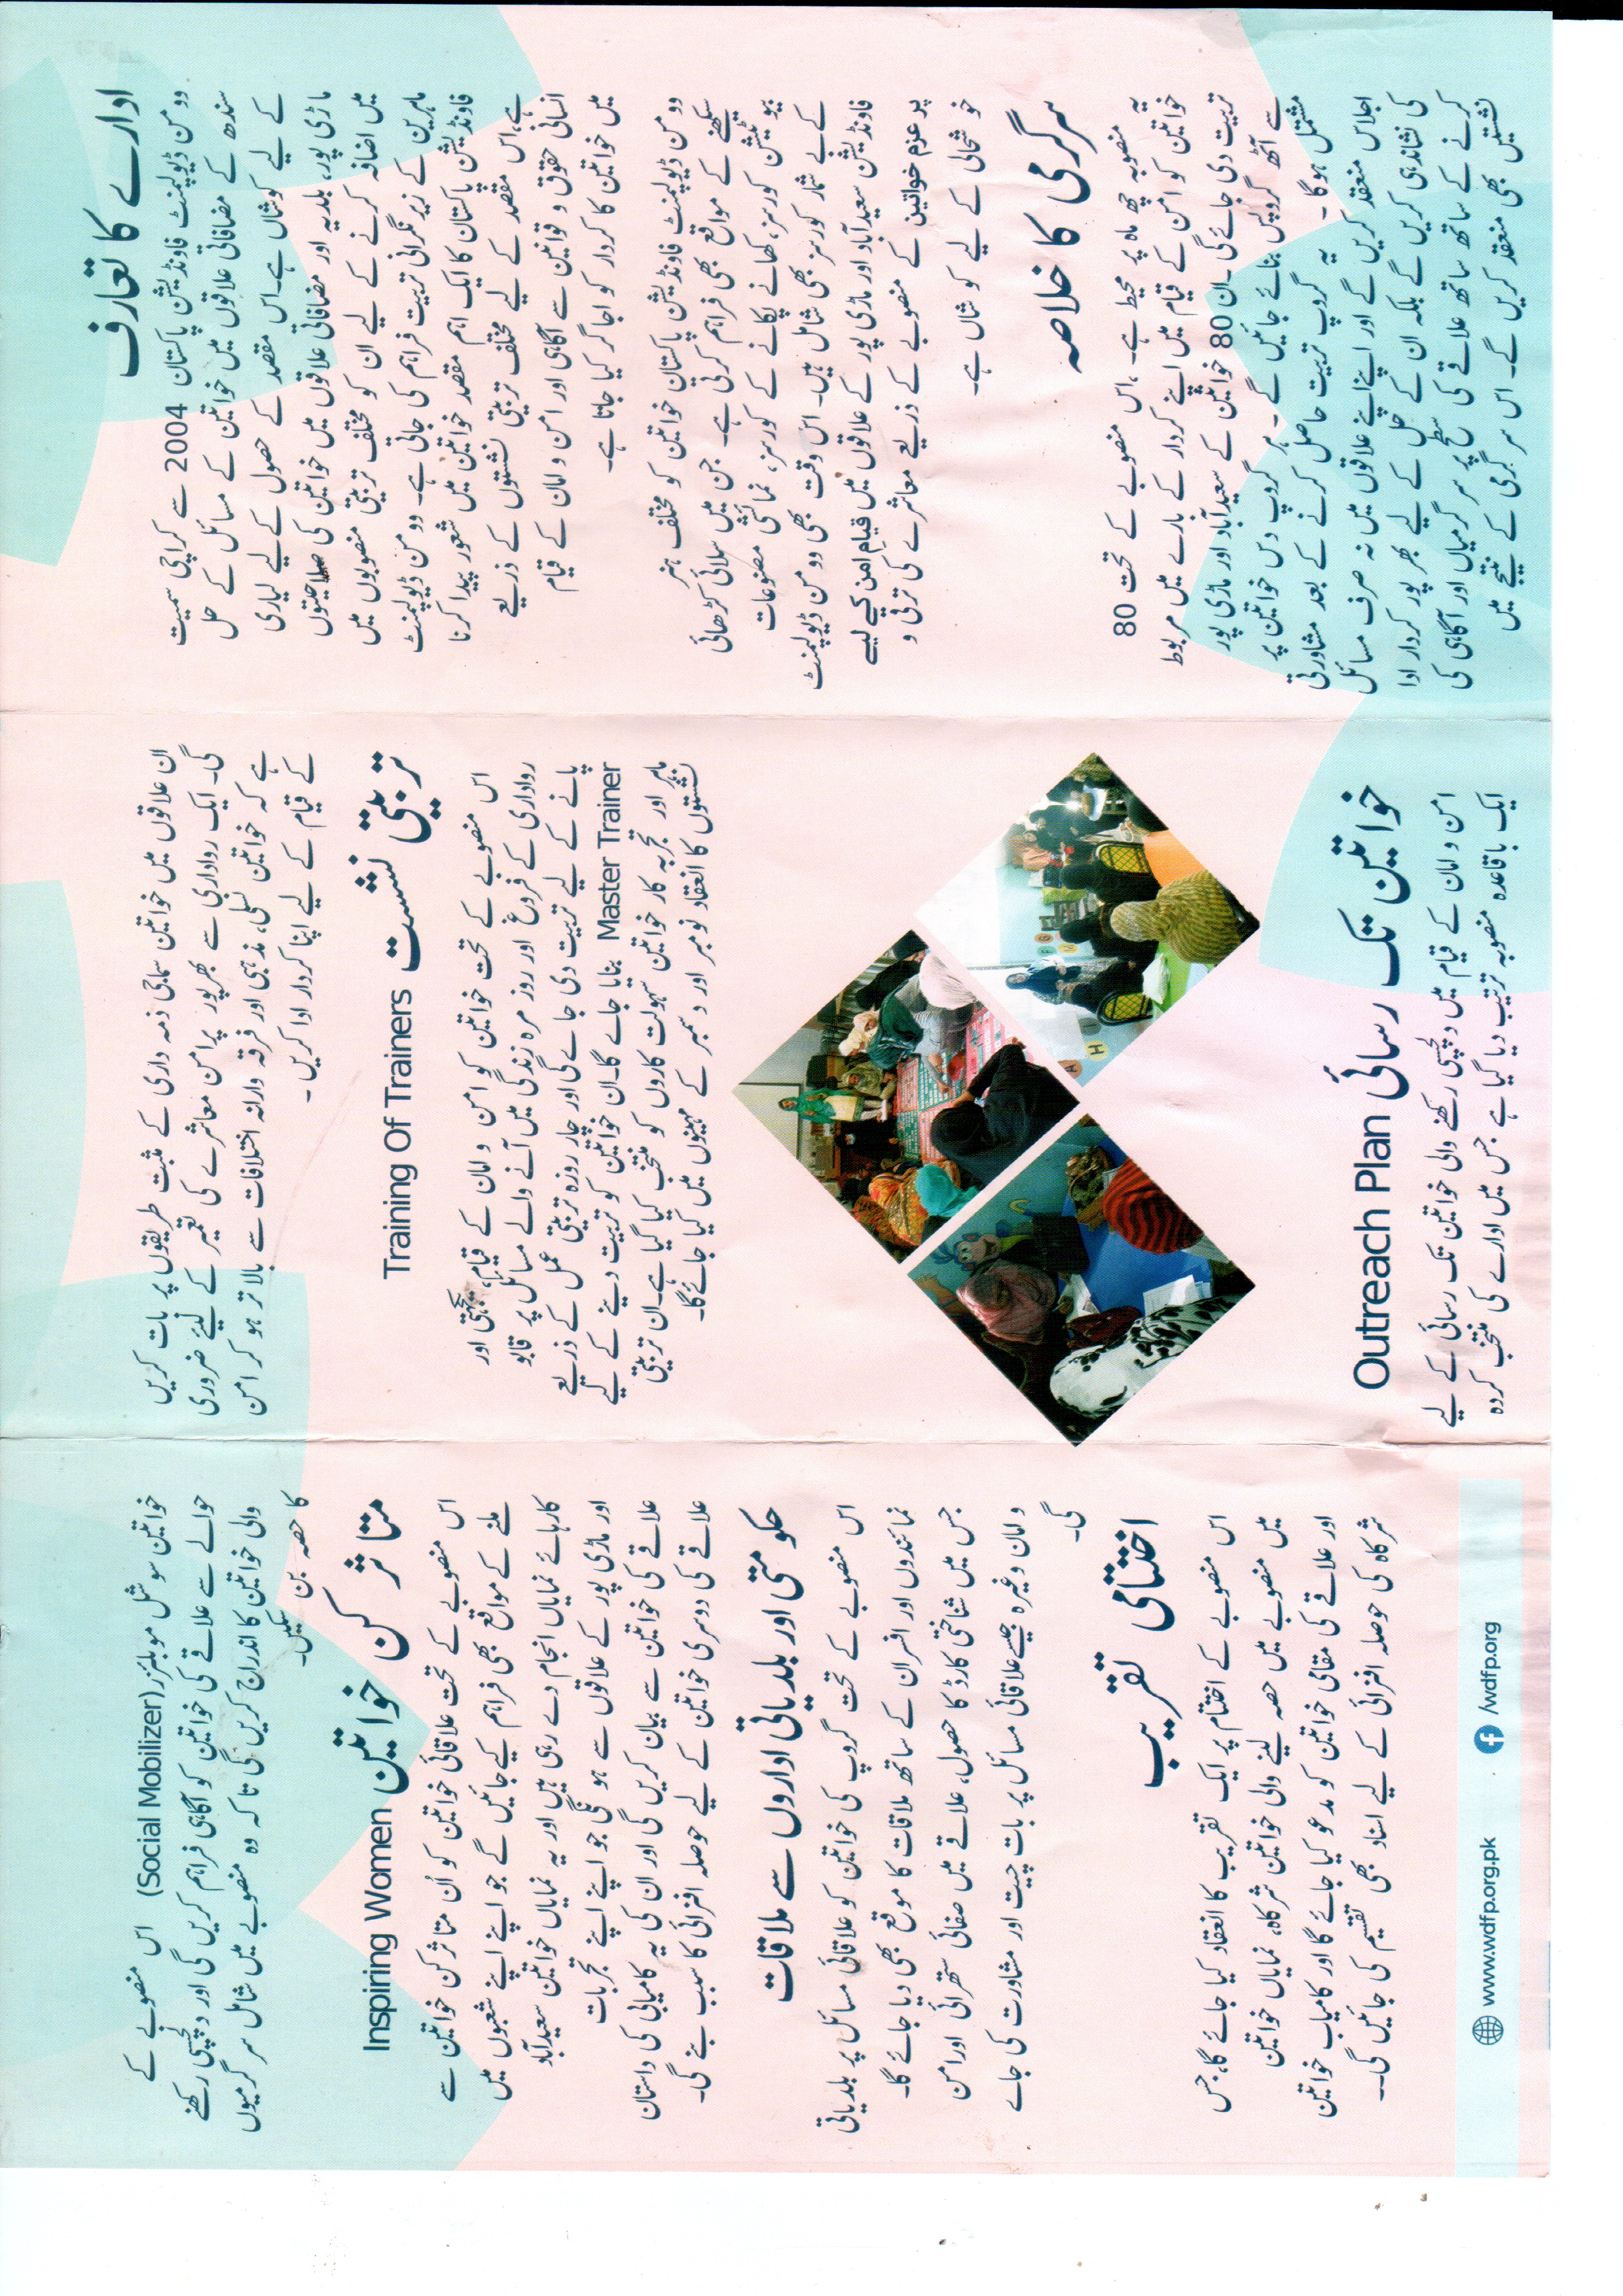 ادارے کا تعارف
وو من ڈیولپمنٹ فاونڈیشن پاکستان 2004 سے کراچی سمیت
سندھ کے مضافاتی علاقوں میں خواتین کے مسائل کے حل
کے لیے کوشاں ہے۔اس مقصد کے حصول کے لیے لیاری
ماڑی پور، بلدیہ اور مضافاتی علاقوں میں خواتین کی صلاحیتوں
میں اضافہ کرنے کے لیے ان کو مختلف تربیتی منصوبوں میں
ماہرین کے زیر نگرانی تربیت فراہم کی جاتی ہے۔ وو من ڈیولپمنٹ
فاونڈیشن پاکستان کا ایک اہم مقصد خواتین میں شعور پیدا کرنا
ہے،اس مقصد کے لیے مختلف تربیتی نشستوں کے ذریعے
انسانی حقوق و قوانین سے آگاہی اور امن و امان کے قیام
میں خواتین کا کردار کو اجاگر کیا جاتا ہے۔
وو من ڈیولپمنٹ فاونڈیشن پاکستان خواتین کو مختلف ہنر
سیکھنے کے مواقع بھی فراہم کرتی ہے۔ جن میں سلائی کڑھائی
بیو ٹیشن کورسز، کھانے پکانے کے کورسز، نمائشی مصنوعات
کے بے شمار کورسز بھی شامل ہیں۔ اس وقت بھی وو من ڈیولپمنٹ
فاونڈیشن سعیدآباد اور ماڑی پور کے علاقوں میں قیام امن کیے لیے
پر عزم خواتین کے منصوبے کے ذریعے معاشرے کی ترقی و
خو شحالی کے لیے کو شاں ہے۔
سرگرمی کا خلاصہ
یہ منصوبہ چھ ماہ پر محیط ہے ،اس منصوبے کے تحت 80
خواتین کو امن کے قیام میں اپنے کردار کے بارے میں مربوط
تربیت دی جائے گی ۔ان 80 خواتین کے سعیدآباد اور ماڑی پور
سے آٹھ گروپس بنائے جائیں گے۔ ہر گروپ دس خواتین پر
مشتمل ہو گا۔ یہ گروپ تربیت حاصل کرنے کے بعد مشاورتی
اجلاس منعقد کریں گے اور اپنے اپنے علاقوں میں نہ صرف مسائل
کی نشاندہی کریں گے بلکہ ان کے حل کے لیے بھر پور کردار ادا
کرنے کے ساتھ ساتھ علاقے کی سطح پر سر گرمیاں اور آگاہی کی
نشستیں بھی منعقد کریں گے۔ اس سر گرمی کے نتیجے میں
ان علاقوں میں خواتین سماجی ذمہ داری کے مثبت طریقوں پر بات کریں
گی۔ ایک رواداری سے بھرپور پرامن معاشرے کی تعمیر کے لیئے ضروری
ہے کہ خواتین نسلی، مذہبی اور فرقہ وارانہ اختلافات سے بالا تر ہو کر امن
کے قیام کے لیے اپنا کردار ادا کریں۔
تربیتی نشست Training Of Trainers
اس منصوبے کے تحت خواتین کو امن و امان کے قیام، یکجہتی اور
رواداری کے فروغ اور روز مرہ زندگی میں آنے والے مسائل پر قابو
پانے کے لیے تربیت دی جاے گی اور چار روزہ تربیتی عمل کے ذریعے
Master Trainer بنایا جاے گا۔ان خواتین کو تربیت دینے کے لیے
ماہر اور تجربہ کار خواتین سہولت کاروں کو منتخب کیا گیا ہے۔ان تربیتی
نشستوں کا انعقاد نومبر اور دسمبر کے مہینوں میں کیا جائے گا۔
خواتین تک رسائی Outreach Plan
امن و امان کے قیام میں دلچسپی رکھنے والی خواتین تک رسائی کے لیے
ایک باقاعدہ منصوبہ ترتیب دیا گیا ہے جس میں ادارے کی منتخب کردہ
خواتین سوشل موبلئزر(Social Mobilizer) اس منصوبے کے
حوالے سے علاقے کی خواتین کو آگاہی فراہم کریں گی اور دلچسپی رکھنے
والی خواتین کا اندراج کریں گی تا کہ وہ منصوبے میں شامل سر گرمیوں
کا حصہ بن سکیں۔
متا ثر کن خواتین Inspiring Women
اس منصوبے کے تحت علاقائی خواتین کو اُن متاثر کن خواتین سے
ملنے کے مواقع بھی فراہم کیے جائیں گے جو اپنے اپنے شعبوں میں
کارہائے نمایاں انجام دے رہی ہیں اور یہ نمایاں خواتین سعیدآباد
اور ماڑی پور کے علاقوں سے ہو نگی جو اپنے اپنے تجربات
علاقے کی خواتین سے بیان کریں گی اور ان کی یہ کامیابی کی داستان
علاقے کی دوسری خواتین کے لیے حوصلہ افزائی کا سبب بنے گی۔
حکو متی اور بلدیاتی اداروں سے ملاقات
اس منصوبے کے تحت گروپ کی خواتین کو علاقائی مسائل پر بلدیاتی
نمائندوں اور افسران کے ساتھ ملاقات کا موقع بھی دیا جائے گا۔
جس میں شناختی کارڈ کا حصول، علاقے میں صفائی ستھرائی اورامن
و امان وغیرہ جیسے علاقائی مسائل پر بات چیت اور مشاورت کی جاے
گی۔
اختتامی تقریب
اس منصوبے کے اختتام پر ایک تقریب کا انعقاد کیا جائے گا، جس
میں منصوبے میں حصہ لینے والی خواتین شرکاہ، نمایاں خواتین
اور علاقے کی مقامی خواتین کو مدعو کیا جائے گا اور کامیاب خواتین
شرکاہ کی حوصلہ افزائی کے لیے اسناد بھی تقسیم کی جائیں گی۔۔
www.wdfp.org.pk /wdfp.org